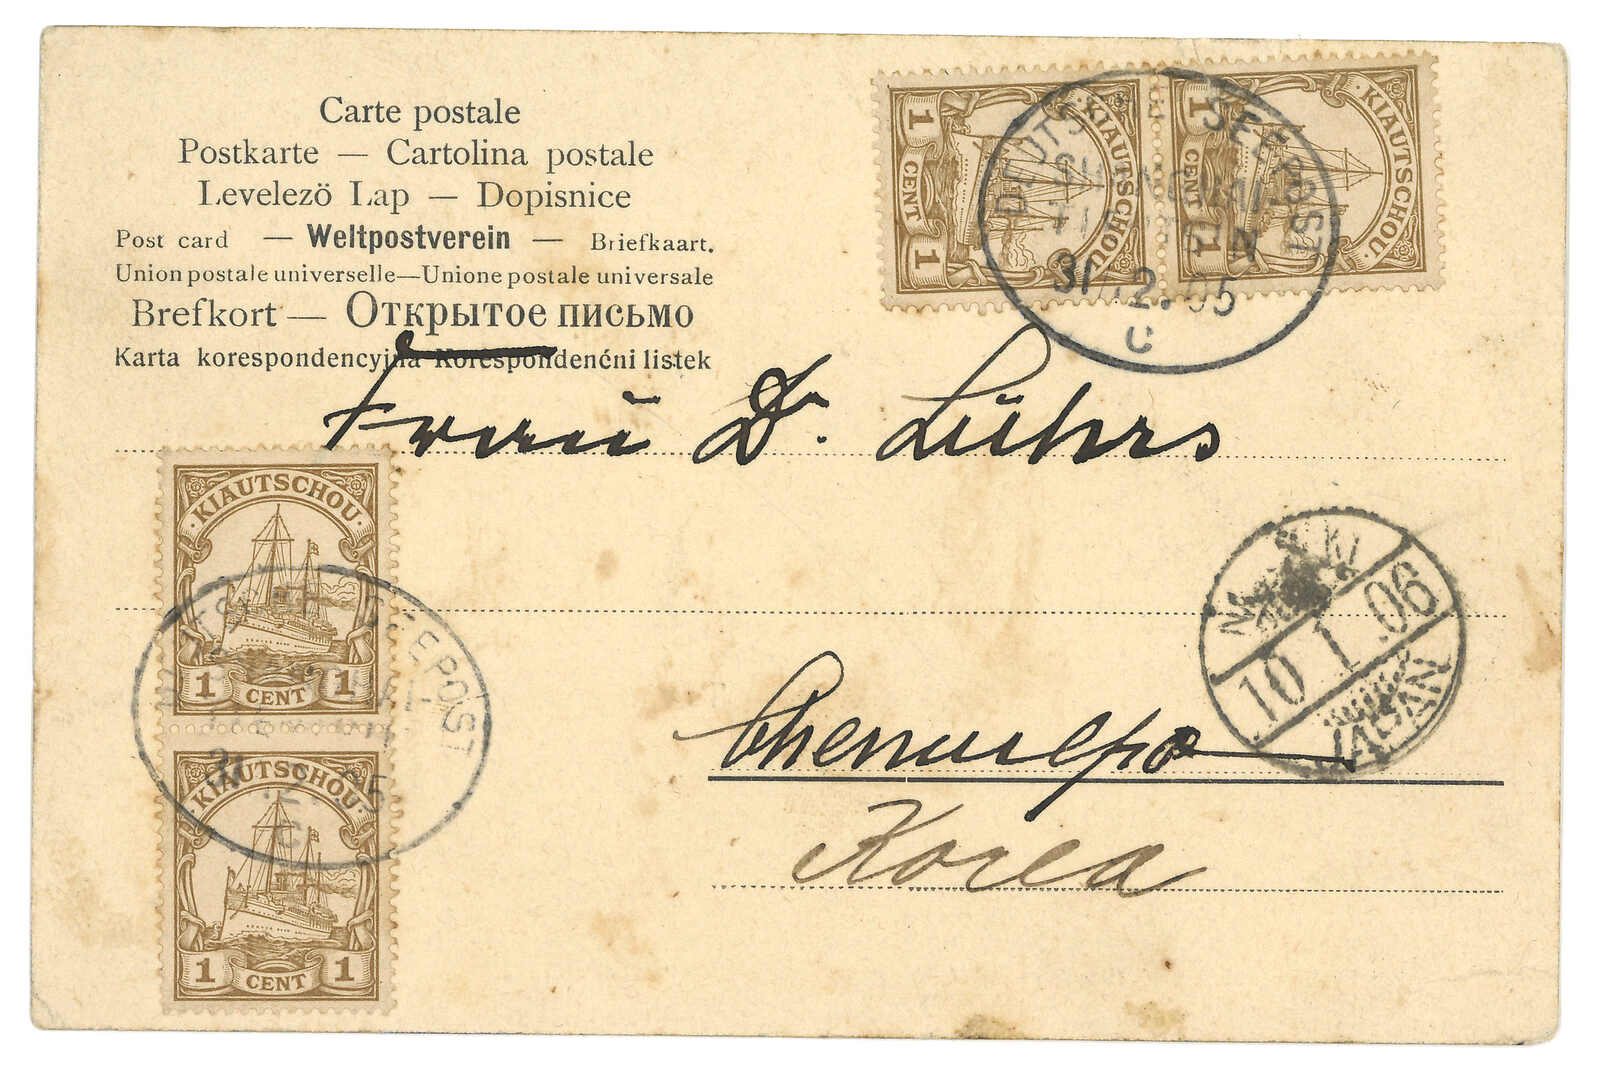 Carte postale
Postkarte — Cartolina postale
Levelezö Lap — Dopisnice
Post card — Weltpostverein — Briefkaart.
Union postale universelle—Unione postale universale
Brefkort — Открытое письмо
Karta korespondencyjna Korespondenćni listek
KIAUTSCHOU
1 CENT 1
KIAUTSCHOU
1 CENT 1
SEEPOST
31 12. 05
c
Frau Dr. Lührs
KIAUTSCHOU
1 CENT 1
KIAUTSCHOU
1 CENT 1
SEEPOST
C
10.1.06
JAPAN
Chemulpo
Korea